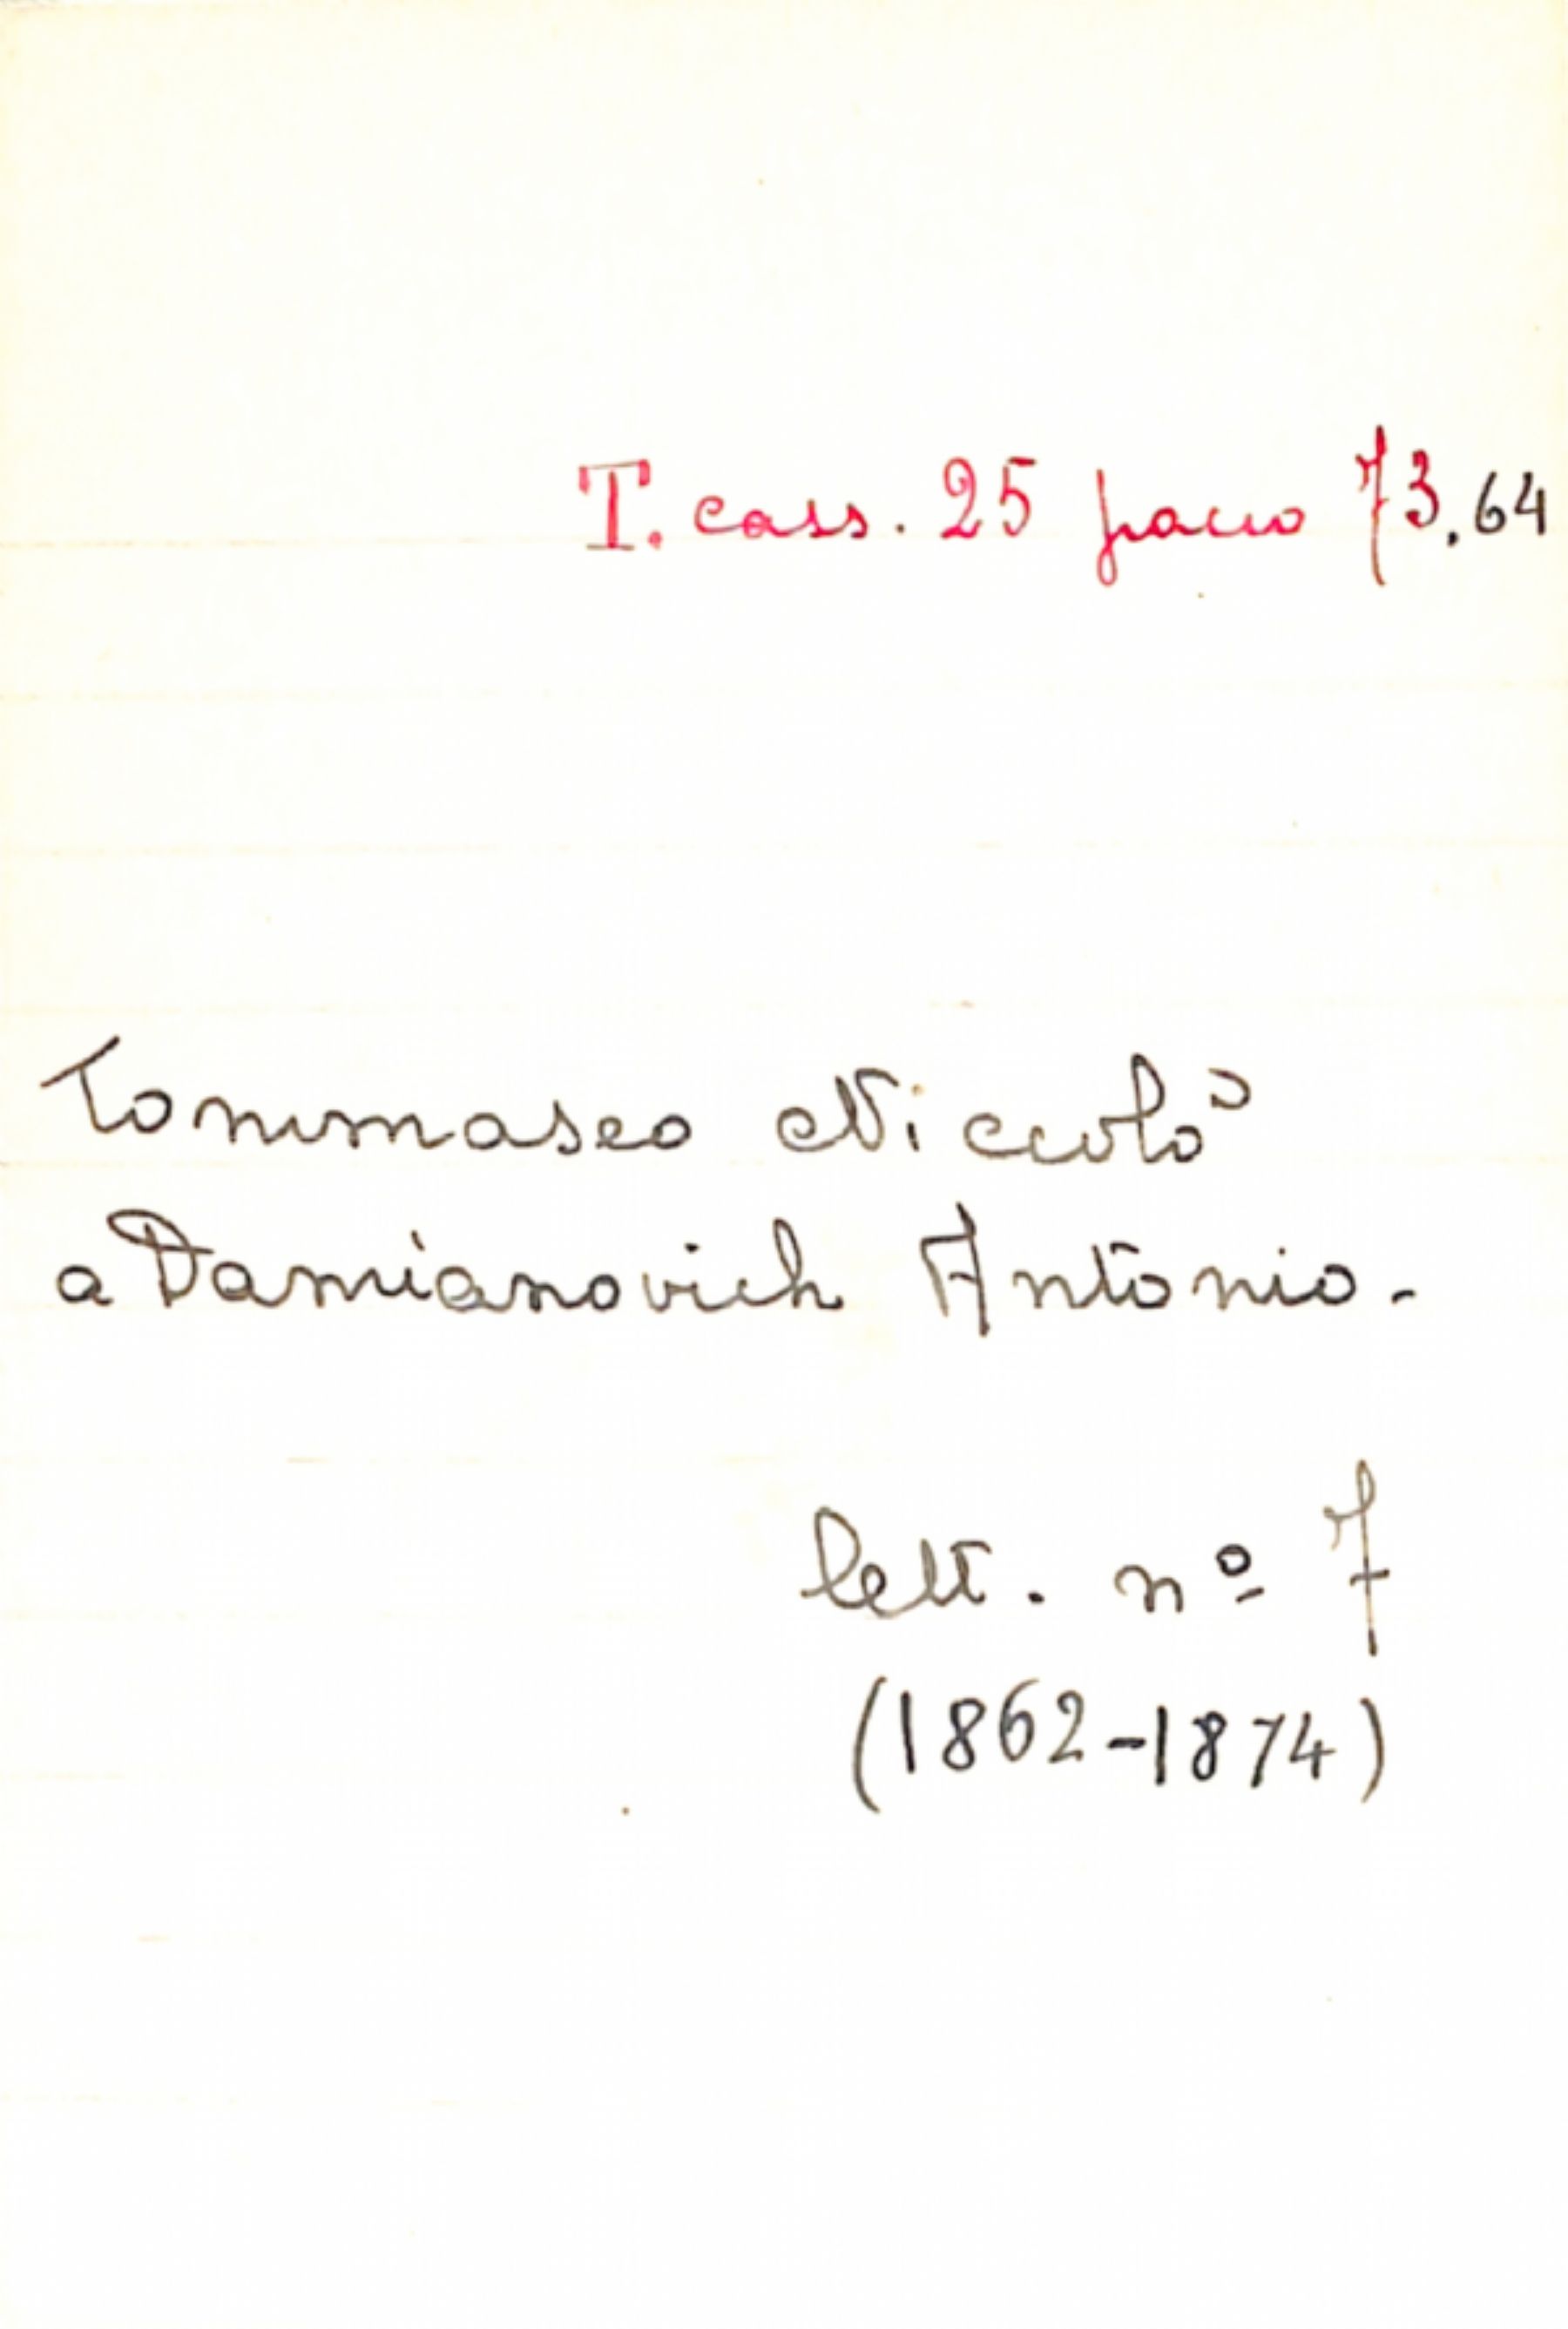 T. cass. 25 pacco 73.64
Tommaseo Niccolò
a Damianovich Antonio.
lett. nº 7
(1862-1874)